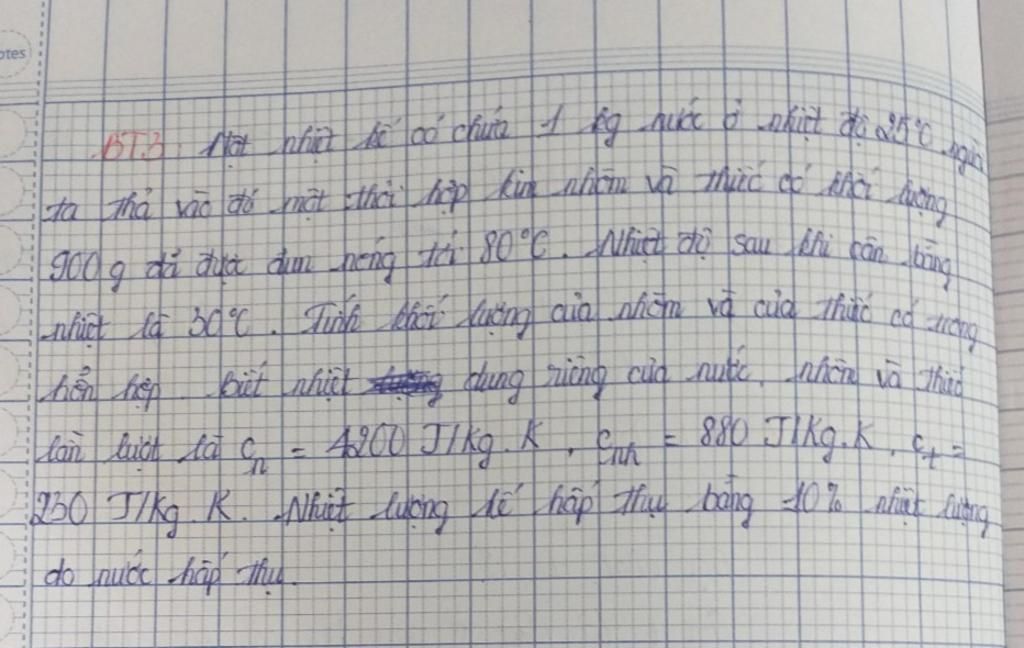 otes
BT3: Một nhiệt kế có chứa 1 kg nước ở nhiệt độ 25°C người
ta thả vào đó một thỏi hợp kim nhôm và thiếc có khối lượng
900g đã được đun nóng tới 80°C. Nhiệt độ sau khi cân bằng
nhiệt là 30°C. Tính khối lượng của nhôm và của thiếc có trong
hỗn hợp. biết nhiệt dung riêng của nước, nhôm và thiếc
lần lượt là c_n = 4200 J/kg.K, c_nh = 880 J/Kg.K, c_t =
230 J/Kg.K. Nhiệt lượng kế hấp thụ bằng 10% nhiệt lượng
do nước hấp thụ.